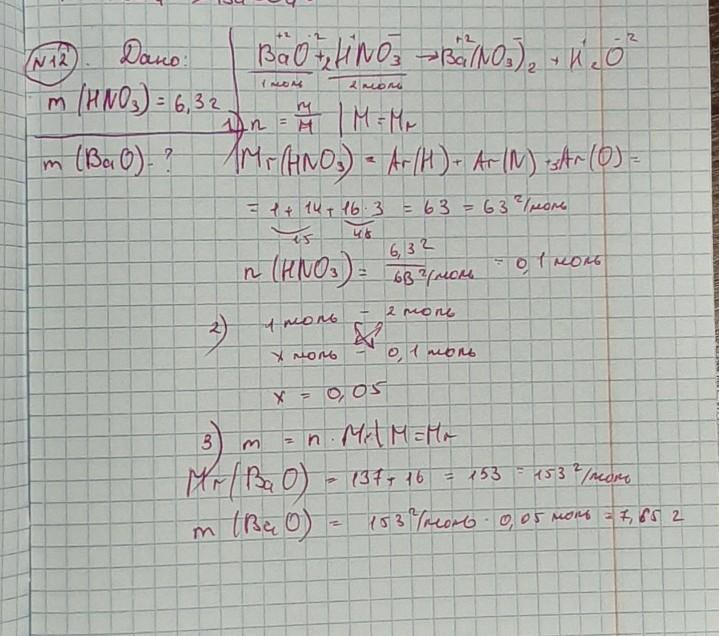 N12. Дано:
m (HNO₃) = 6,3г
m (BaO) - ?
+2 -2 + - +2 - + -2
BaO + 2HNO₃ → Ba(NO₃)₂ + H₂O
1 моль 2 моль
1) n = m/M | M = Mr
Mr(HNO₃) = Ar(H) + Ar(N) + 3Ar(O) =
= 1 + 14 + 16 · 3 = 63 = 63 г/моль
15 48
n (HNO₃) = 6,3г / 63 г/моль = 0,1 моль
2) 1 моль – 2 моль
x моль – 0,1 моль
x = 0,05
3) m = n · Mr | M = Mr
Mr(BaO) = 137 + 16 = 153 = 153 г/моль
m (BaO) = 153 г/моль · 0,05 моль = 7,65 г